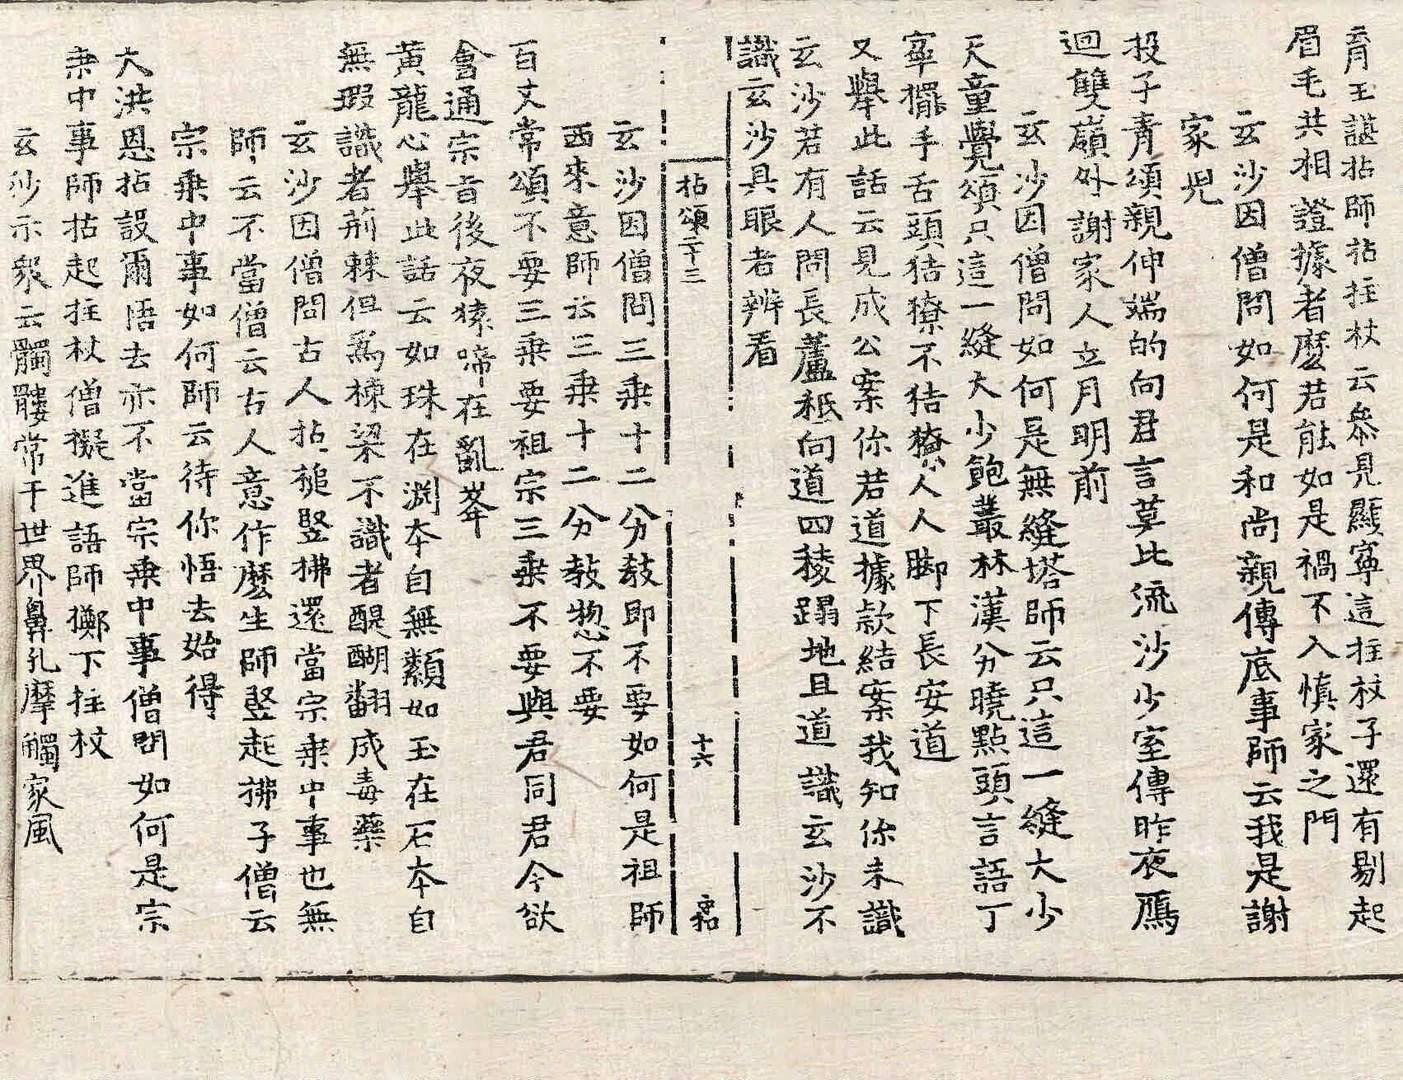 育王諶拈師拈拄杖云叅見顯寧這拄杖子還有剔起
眉毛共相證據者麽若能如是禍不入慎家之門
玄沙因僧問如何是和尚親傳底事師云我是謝
家兒
投子青頌親伸端的向君言莫比流沙少室傳昨夜鴈
迴雙嶺外謝家人立月明前
玄沙因僧問如何是無縫塔師云只這一縫大少
天童覺頌只這一縫大少飽叢林漢分曉點頭言語丁
寧擺手舌頭狤獠不狤獠人人脚下長安道
又舉此話云見成公案你若道據款結案我知你未識
玄沙若有人問長蘆秪向道四稜蹋地且道識玄沙不
識玄沙具眼者辨看
拈頌二十三
十六
玄沙因僧問三乗十二分教即不要如何是祖師
西來意師云三乗十二分教揔不要
百丈常頌不要三乗要祖宗三乗不要與君同君今欲
會通宗旨後夜猿啼在亂峯
黃龍心舉此話云如珠在渊本自無纇如玉在石本自
無瑕識者荊棘但爲棟梁不識者醍醐翻成毒藥
玄沙因僧問古人拈槌竪拂還當宗乗中事也無
師云不當僧云古人意作麽生師竪起拂子僧云
宗乗中事如何師云待你悟去始得
大洪恩拈設爾悟去亦不當宗乗中事僧問如何是宗
乗中事師拈起拄杖僧擬進語師擲下拄杖
玄沙示衆云髑髏常干世界鼻孔摩觸家風